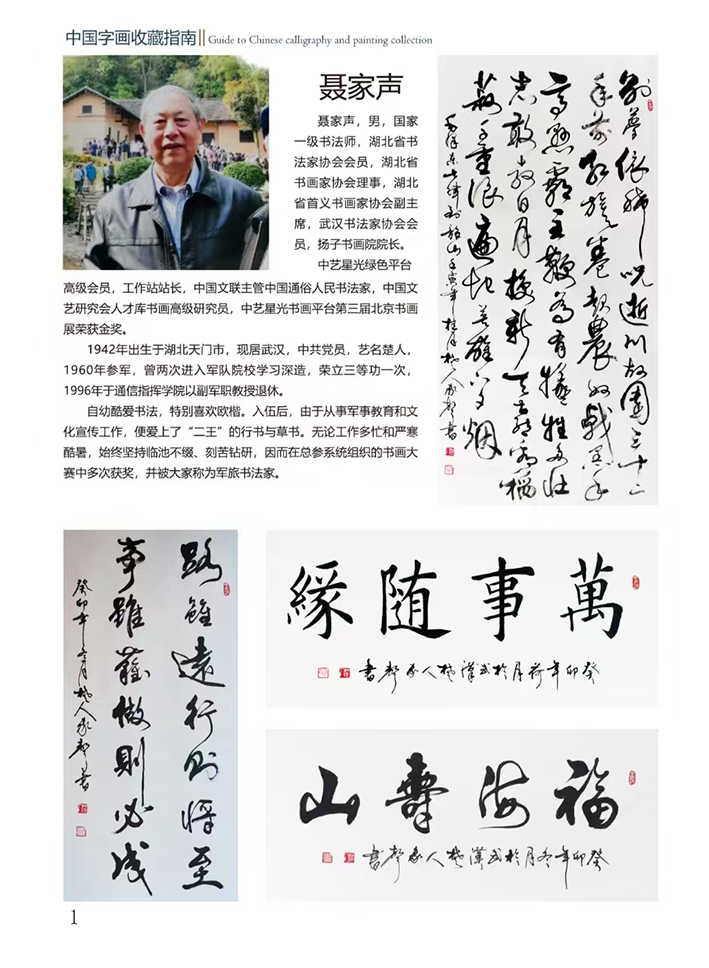 中国字画收藏指南 Guide to Chinese calligraphy and painting collection
聂家声
聂家声，男，国家
一级书法师，湖北省书
法家协会会员，湖北省
书画家协会理事，湖北
省首义书画家协会副主
席，武汉书法家协会会
员，扬子书画院院长。
中艺星光绿色平台
高级会员，工作站站长，中国文联主管中国通俗人民书法家，中国文
艺研究会人才库书画高级研究员，中艺星光书画平台第三届北京书画
展荣获金奖。
1942年出生于湖北天门市，现居武汉，中共党员，艺名楚人，
1960年参军，曾两次进入军队院校学习深造，荣立三等功一次，
1996年于通信指挥学院以副军职教授退休。
自幼酷爱书法，特别喜欢欧楷。入伍后，由于从事军事教育和文
化宣传工作，便爱上了“二王”的行书与草书。无论工作多忙和严寒
酷暑，始终坚持临池不缀、刻苦钻研，因而在总参系统组织的书画大
赛中多次获奖，并被大家称为军旅书法家。
别夢依稀咒逝川故園三十二
年前红旗卷起農奴戟黑手
高悬霸主鞭為有犠牲多壮
志敢教日月换新天喜看稻
菽千重浪遍地英雄下夕烟
毛泽东七律到韶山壬寅年桂月楚人家聲書
路雖遠行則將至
事雖難做則必成
癸卯年冬月楚人家聲書
萬事随緣
癸卯年荷月於武漢楚人家聲書
福海壽山
癸卯年冬月於武漢楚人家聲書
1